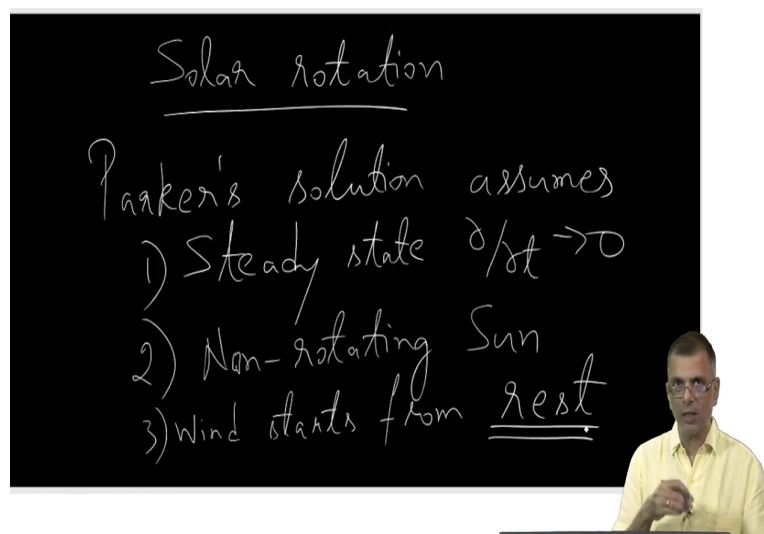 Solar rotation
Parker's solution assumes
1) Steady state ∂/∂t → 0
2) Non-rotating Sun
3) Wind starts from rest